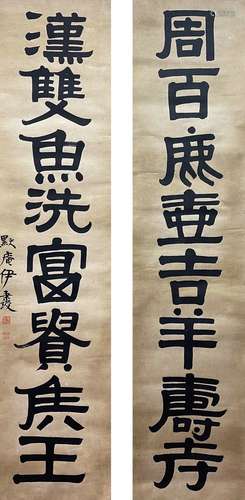 周百鹿壺吉羊壽
漢雙魚洗富貴侯王
默庵伊秉綬